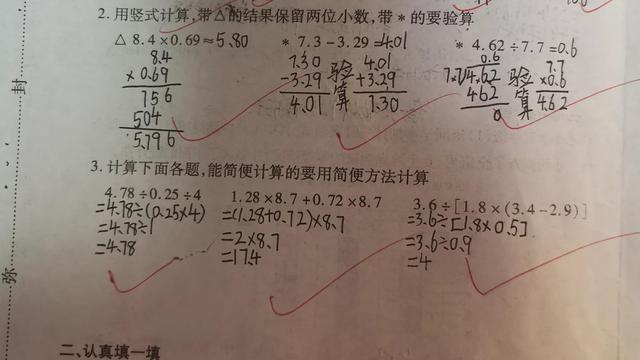 2. 用竖式计算,带△的结果保留两位小数,带*的要验算
△ 8.4×0.69≈5.80
* 7.3-3.29=4.01
* 4.62÷7.7=0.6
8.4
×0.69
756
504
5.796
7.30
-3.29
4.01
验算
4.01
+3.29
7.30
0.6
7.7/4.62
462
0
验算
7.7
×0.6
4.62
3. 计算下面各题,能简便计算的要用简便方法计算
4.78÷0.25÷4
=4.78÷(0.25×4)
=4.78÷1
=4.78
1.28×8.7+0.72×8.7
=(1.28+0.72)×8.7
=2×8.7
=17.4
3.6÷[1.8×(3.4-2.9)]
=3.6÷[1.8×0.5]
=3.6÷0.9
=4
二、认真填一填
封
弥